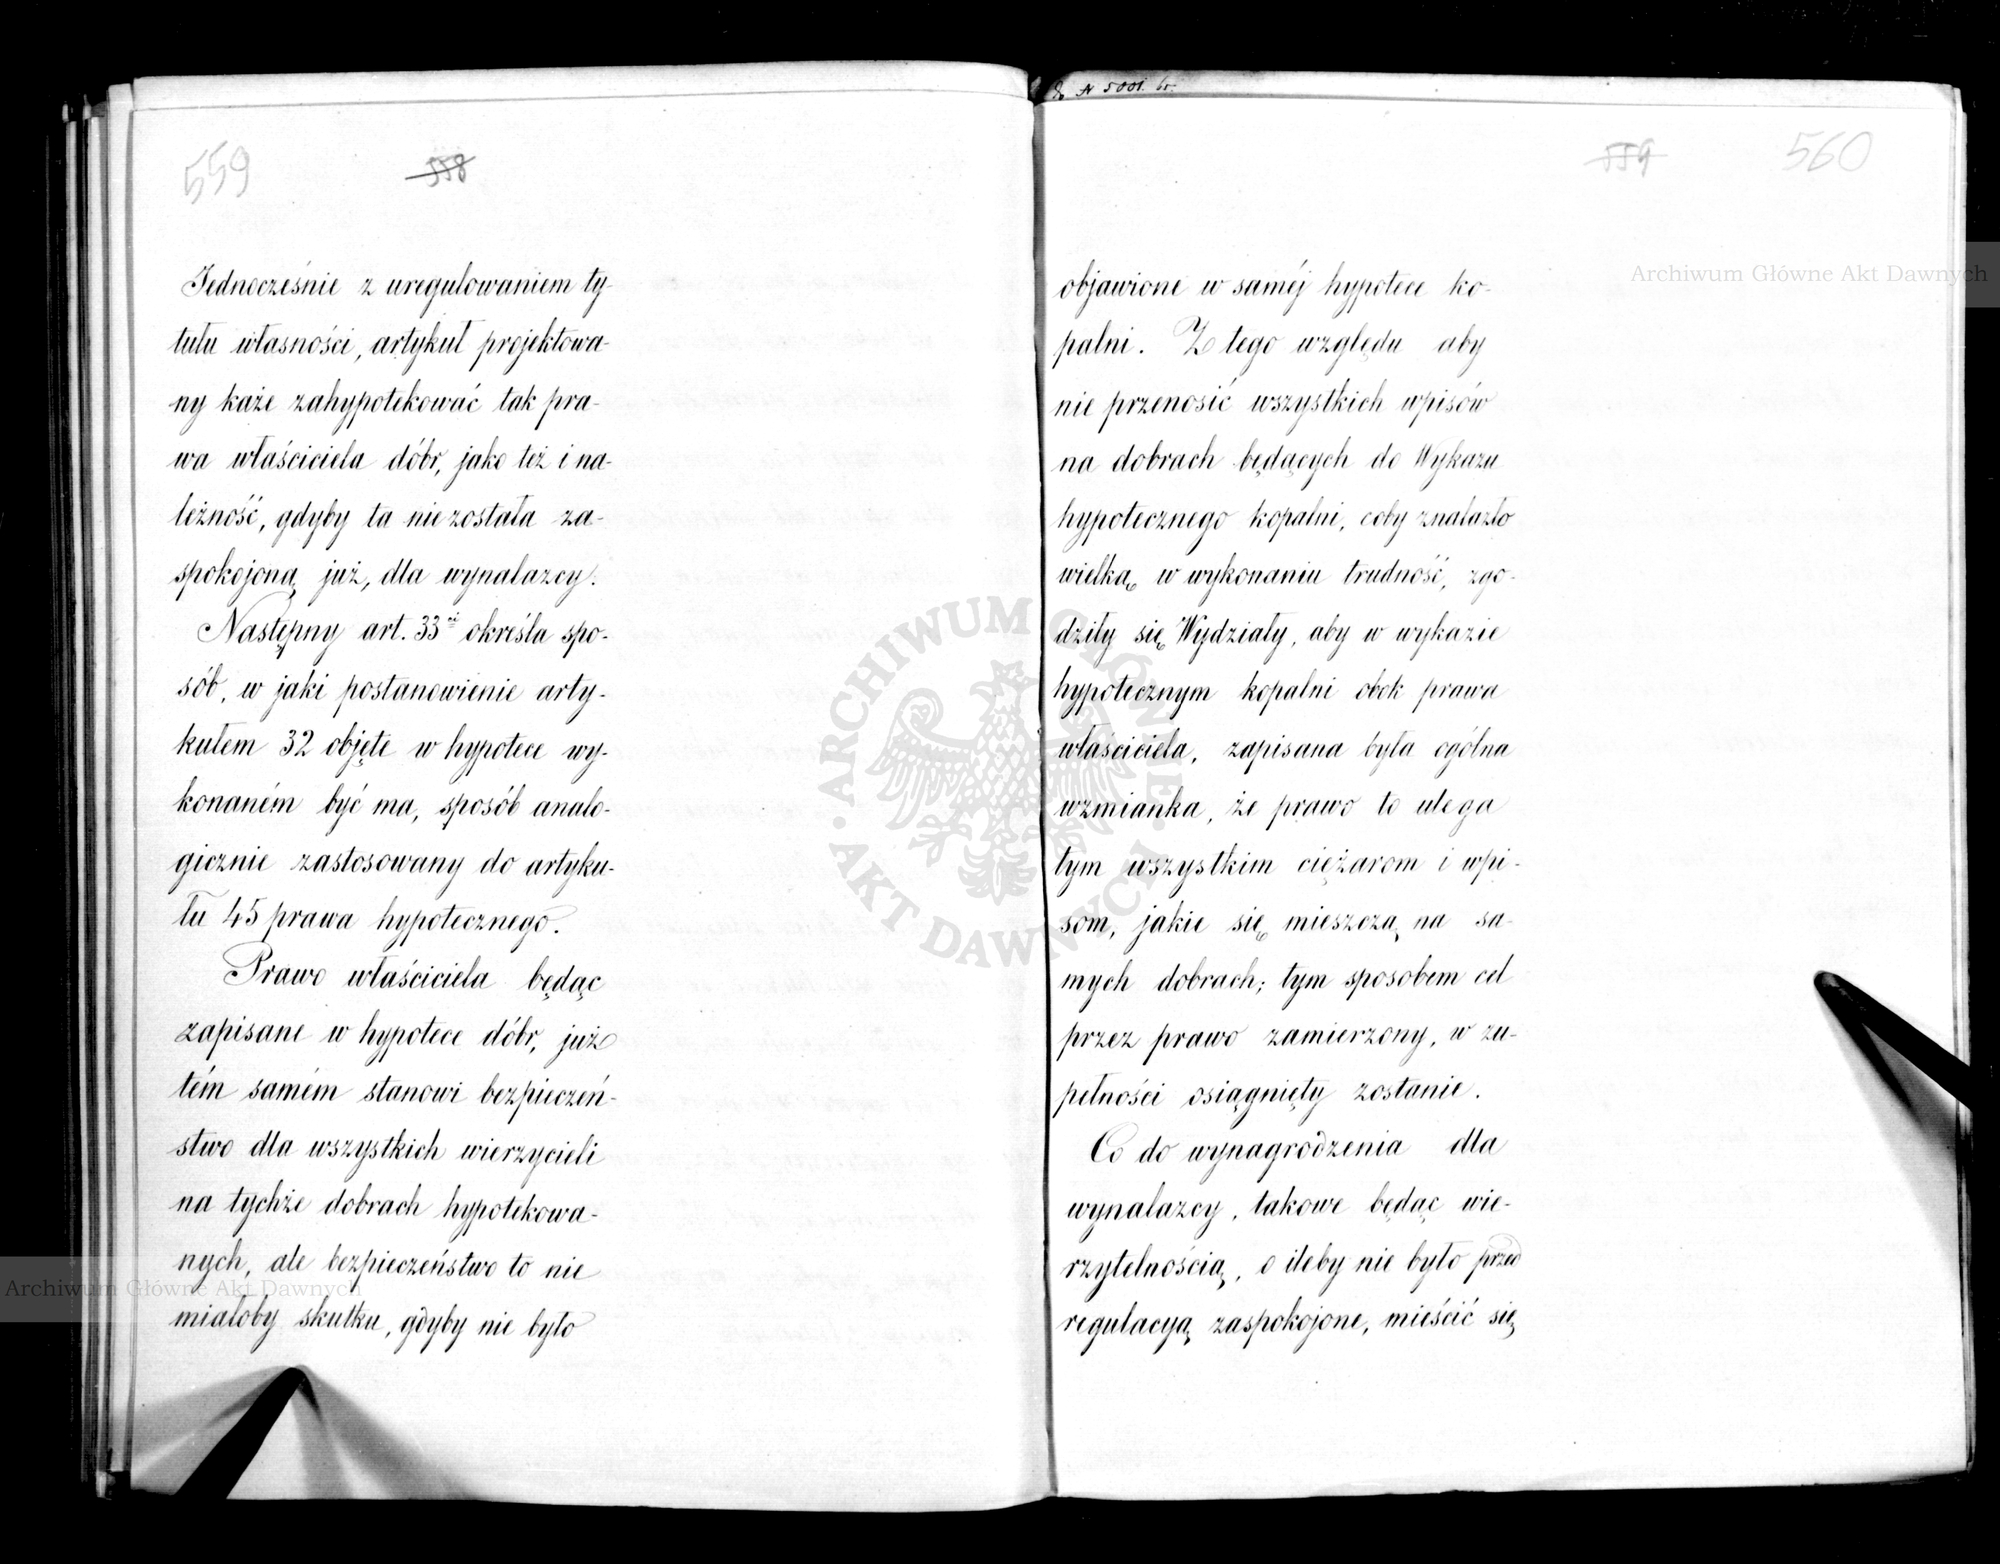 559
558
Jednocześnie z uregulowaniem ty-
tułu własności, artykuł projektowa-
ny każe zahypotekować tak pra-
wa właściciela dóbr, jako też i na-
leżność, gdyby ta nie została za-
spokojoną już, dla wynalazcy.
Następny art. 33ci określa spo-
sób, w jaki postanowienie arty-
kułem 32 objęte w hypotece wy-
konaném być ma, sposób analo-
gicznie zastosowany do artyku-
łu 45 prawa hypotecznego.
Prawo właściciela będąc
zapisane w hypotece dóbr, już
tém samém stanowi bezpieczeń-
stwo dla wszystkich wierzycieli
na tychże dobrach hypotekowa-
nych, ale bezpieczeństwo to nie
miałoby skutku, gdyby nie było
N 5001.
559
560
objawione w saméj hypotece ko-
palni. Z tego względu aby
nie przenosić wszystkich wpisów
na dobrach będących do Wykazu
hypotecznego kopalni, coby znalazło
wielką w wykonaniu trudność, zgo-
dziły się Wydziały, aby w wykazie
hypotecznym kopalni obok prawa
właściciela, zapisana była ogólna
wzmianka, że prawo to ulega
tym wszystkim ciężarom i wpi-
som, jakie się mieszczą na sa-
mych dobrach; tym sposobem cel
przez prawo zamierzony, w zu-
pełności osiągnięty zostanie.
Co do wynagrodzenia dla
wynalazcy, takowe będąc wie-
rzytelnością, o ileby nie było przed
regulacyą zaspokojone, mieścić się
Archiwum Główne Akt Dawnych
ARCHIWUM GŁÓWNE · AKT DAWNYCH ·
Archiwum Główne Akt Dawnych